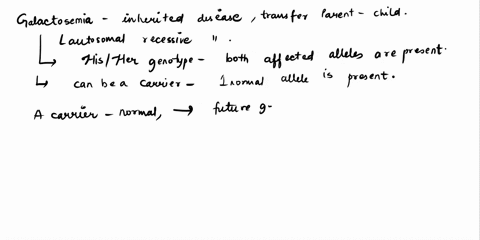 Galactosemia - inherited disease, transfer Parent - child.
Lautosomal recessive " .
His/Her genotype - both affected alleles are present.
can be a carrier - 1 normal allele is present.
A carrier - normal, → future g-